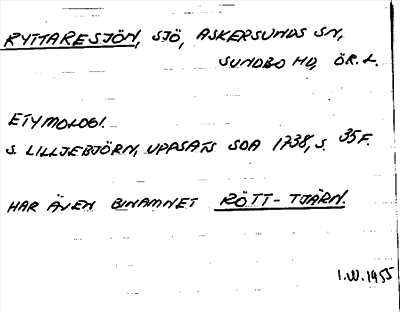 RYTTARESJÖN, SJÖ, ASKERSUNDS SN,
SUNDBO HD, ÖR. L.
ETYMOLOGI.
S. LILLJEBJÖRN, UPPSATS SOA 1738, S. 35 F.
HAR ÄVEN BINAMNET RÖTT-TJÄRN.
I.W. 1955